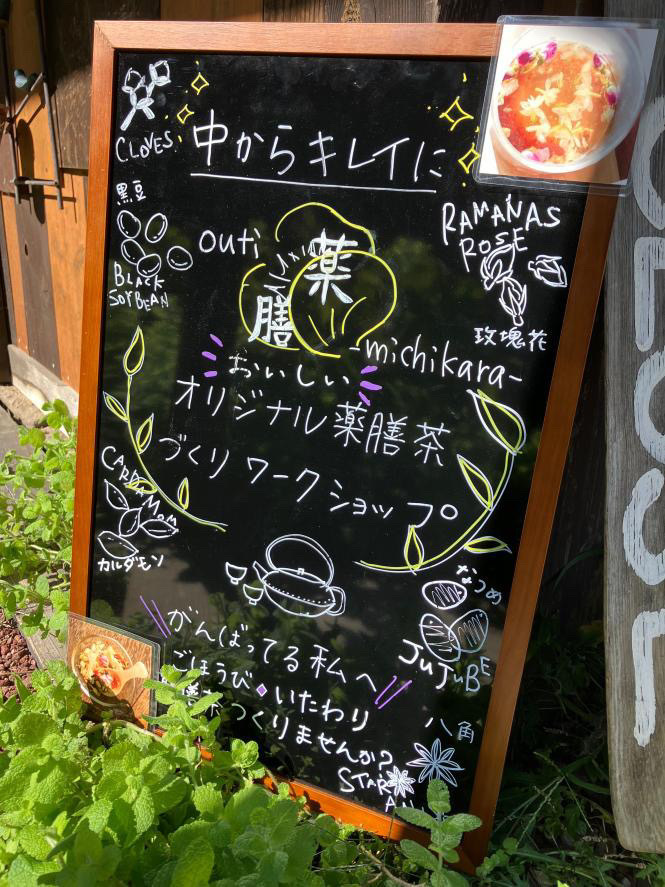 CLOVES
中からキレイに
黒豆
BLACK
SOYBEAN
RAMANAS
ROSE
玫瑰花
outi
薬
膳
-michikara-
おいしい
オリジナル薬膳茶
づくりワークショップ
CARDAMOM
カルダモン
なつめ
JUJUBE
がんばってる私へ
ごほうび◆いたわり
つくりませんか?
八角
STAR